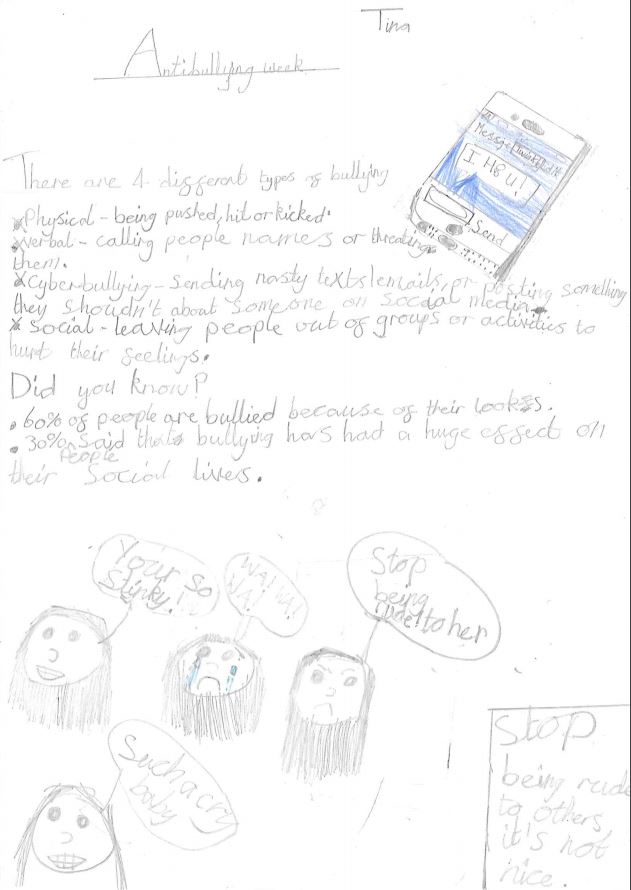 Tina
Antibullying week
Message
I H8 U!
Send
There are 4 different types of bullying
Physical - being pushed, hit or kicked.
verbal - calling people names or threating
them.
Cyberbullying - Sending nasty texts/emails, or posting something
they shouldn't about someone on social media.
Social - leaving people out of groups or activities to
hurt their feelings.
Did you know?
60% of people are bullied because of their looks.
30% people said that bullying has had a huge effect on
their social lives.
Your so
Stinky!
WA! WA!
WA!
Stop
being
rude! to her
Such a cry
baby
Stop
being rude
to others
it's not
nice.